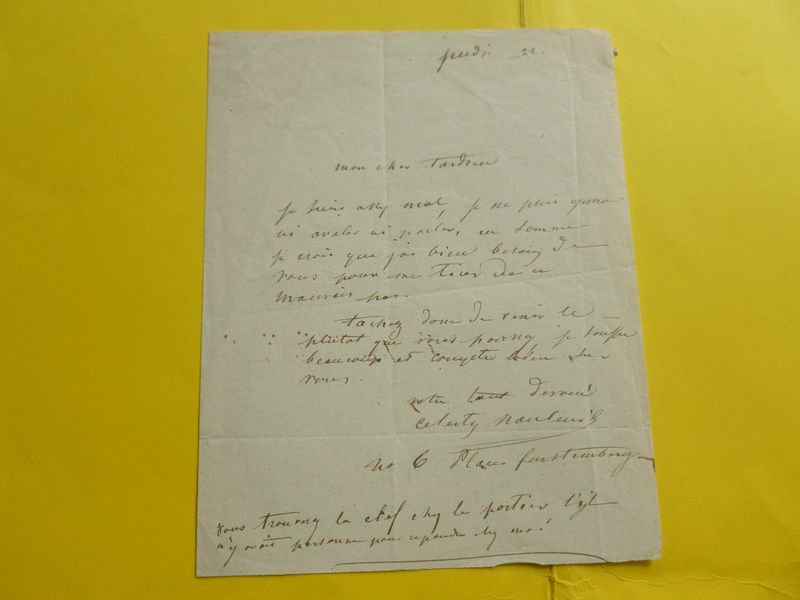 jeudi 21.
mon cher tardieu
je suis assez mal, je ne puis guere
ni avaler ni parler, en somme
je crois que j'ai bien besoin de
vous pour me tirer de ce
mauvais pas.
tachez donc de venir le
plutot que vous pourrez je souffre
beaucoup et compte bien sur
vous.
votre tout devoué
celestin nanteuil
no 6 place furstemberg
vous trouverez la clef chez le portier s'il
n'y avait personne pour repondre chez moi